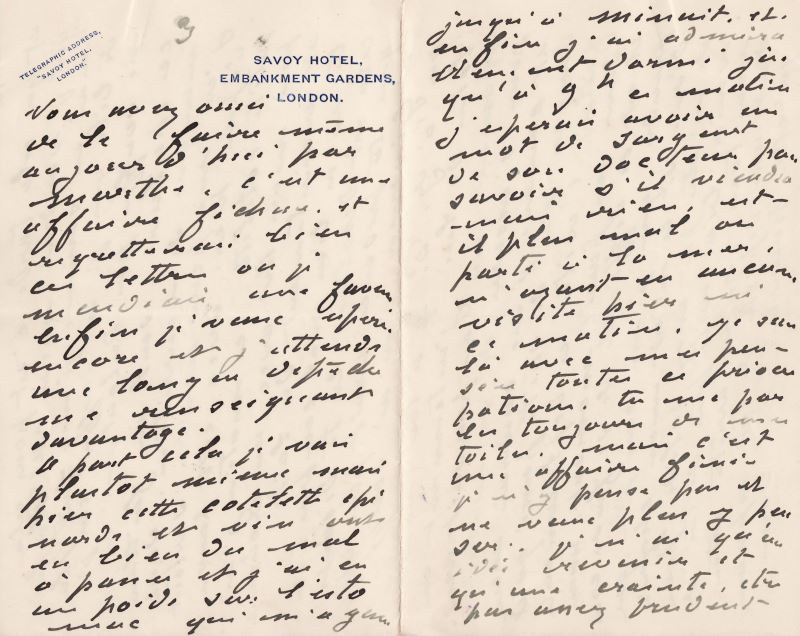 3
TELEGRAPHIC ADDRESS,
"SAVOY HOTEL,
LONDON."
SAVOY HOTEL,
EMBANKMENT GARDENS,
LONDON.
Vous avez aussi
de le faire même
aujour d'hui par
Marthe. c'est une
affaire fichue. et
regretterai bien
ces lettres ou je
mendiais une faveur
enfin j'veux
encore et j'attends
une longue depêche
me renseignant
davantage.
a part cela je vais
plustot mieux mais
hier cette cotelette epi
nards et vin ont
eu bien du mal
à passer et j'ai eu
un poids sur l'esto
mac qui m'a
jusqu'à minuit. et
enfin j'ai admira
blement dormi jus
qu'à 9 h ce matin
j'esperais avoir un
mot de Sargent
de son docteur pour
savoir s'il viendra
mais rien. est-
il plus mal ou
parti à la mer.
n'ayant eu aucune
visite hier ni
ce matin. je suis
là avec mes pen-
sées toutes
tu me par
les toujours de
toiles. mais c'est
une affaire finie
j'n'y pense pas et
ne veux plus y pen
ser. j'n'ai qu'une
idée revenir et
qu'une crainte. etre
pas assez prudent